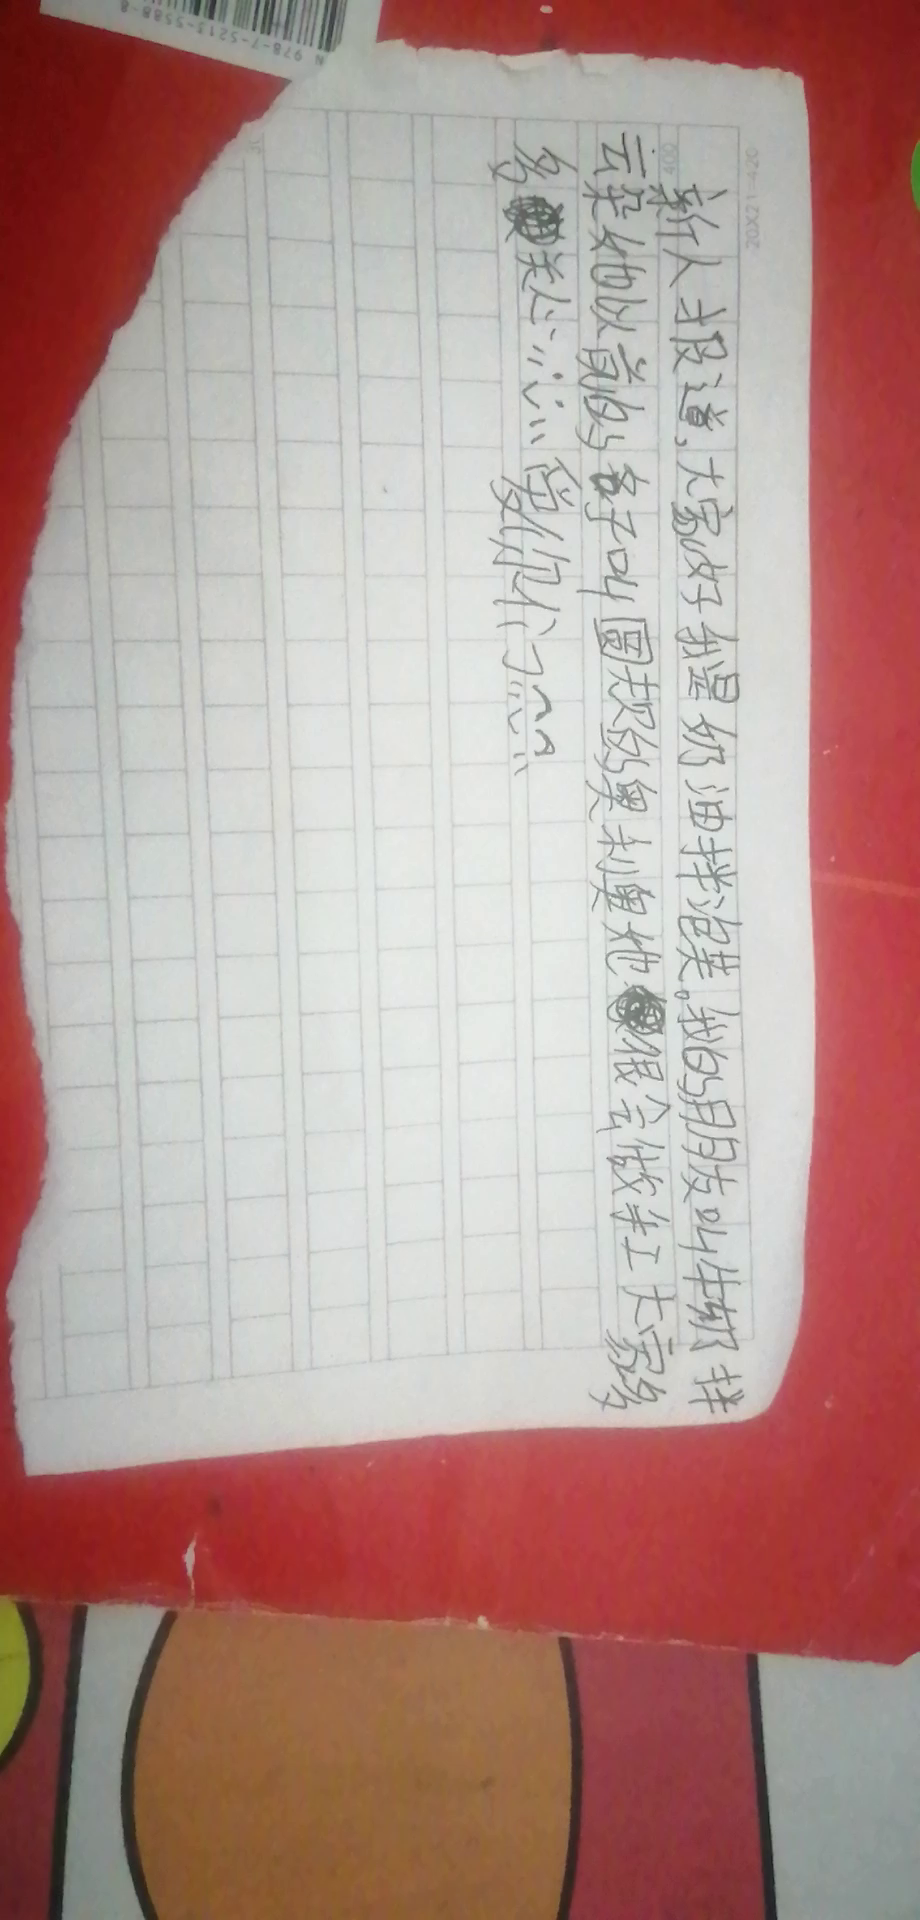 新人报道，大家好我是奶油拌泡芙。我的朋友叫牛奶拌
云朵她以前的名子叫圆规的奥利奥她很会做手工大家多
多关心 爱你们
20X21=420
400
N 978-7-5213-5588-8